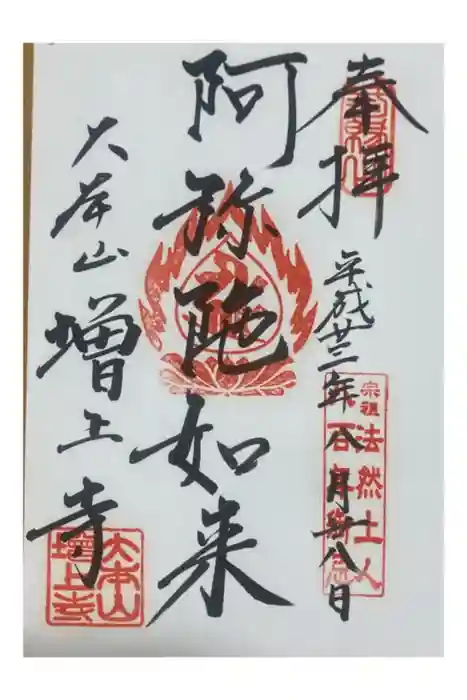 奉拝
平成廿三年八月廿八日
阿弥陁如来
大本山
増上寺
宗祖
法然上人
大本山
增上寺